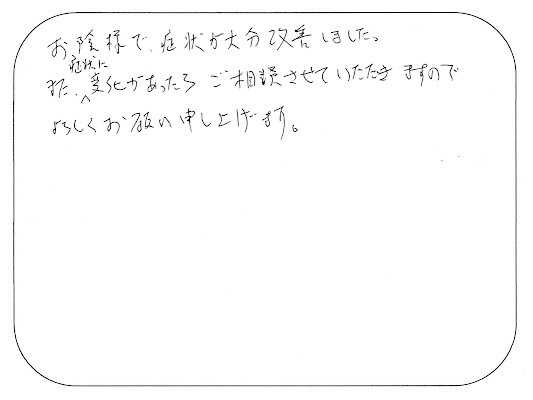 お陰様で、症状が大分改善しました。
また、症状に変化があったら ご相談させていただきますので
よろしくお願い申し上げます。